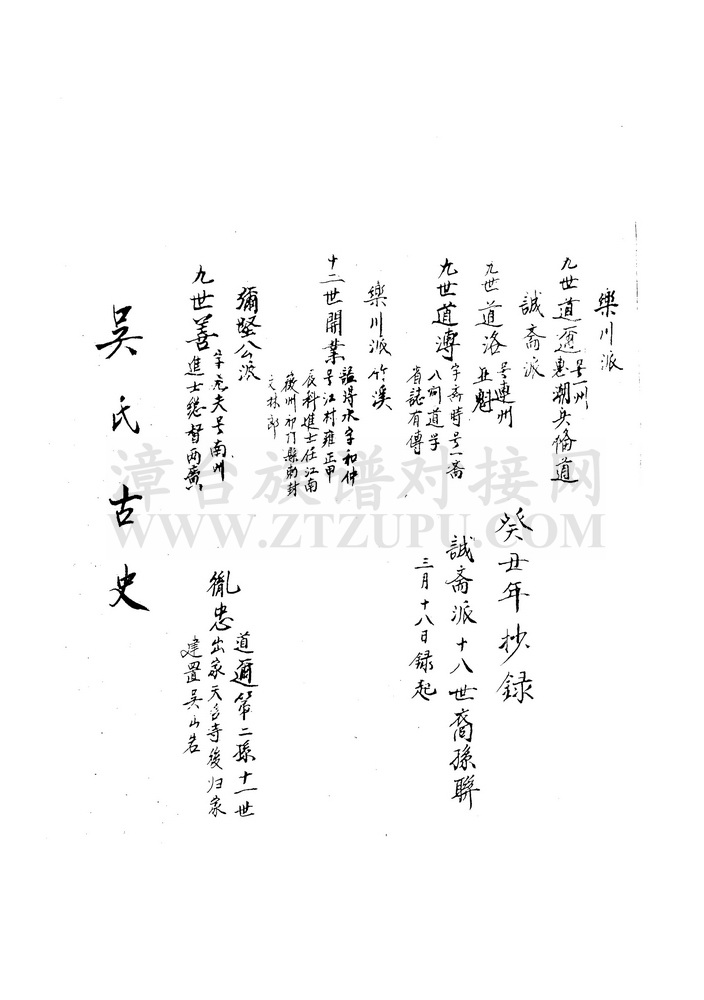 樂川派
九世道邇号一州
惠潮兵備道
誠斋派
九世道洛号連州
亚魁
九世道溥字斋時号一斋
八閩道学
省誌有傳
樂川派竹溪
十二世開業諡得水字和仲
号江村雍正甲
辰科進士任江南
徽州祁门縣勅封
文林郎
彌堅公派
九世善字元夫号南州
進士總督两廣
吳氏古史
癸丑年抄録
誠斋派十八世裔孫聯
三月十八日録起
道邇第二孫十一世
胤忠出家天宫寺後归家
建置吴山岩
漳台族谱对接网
WWW.ZTZUPU.COM